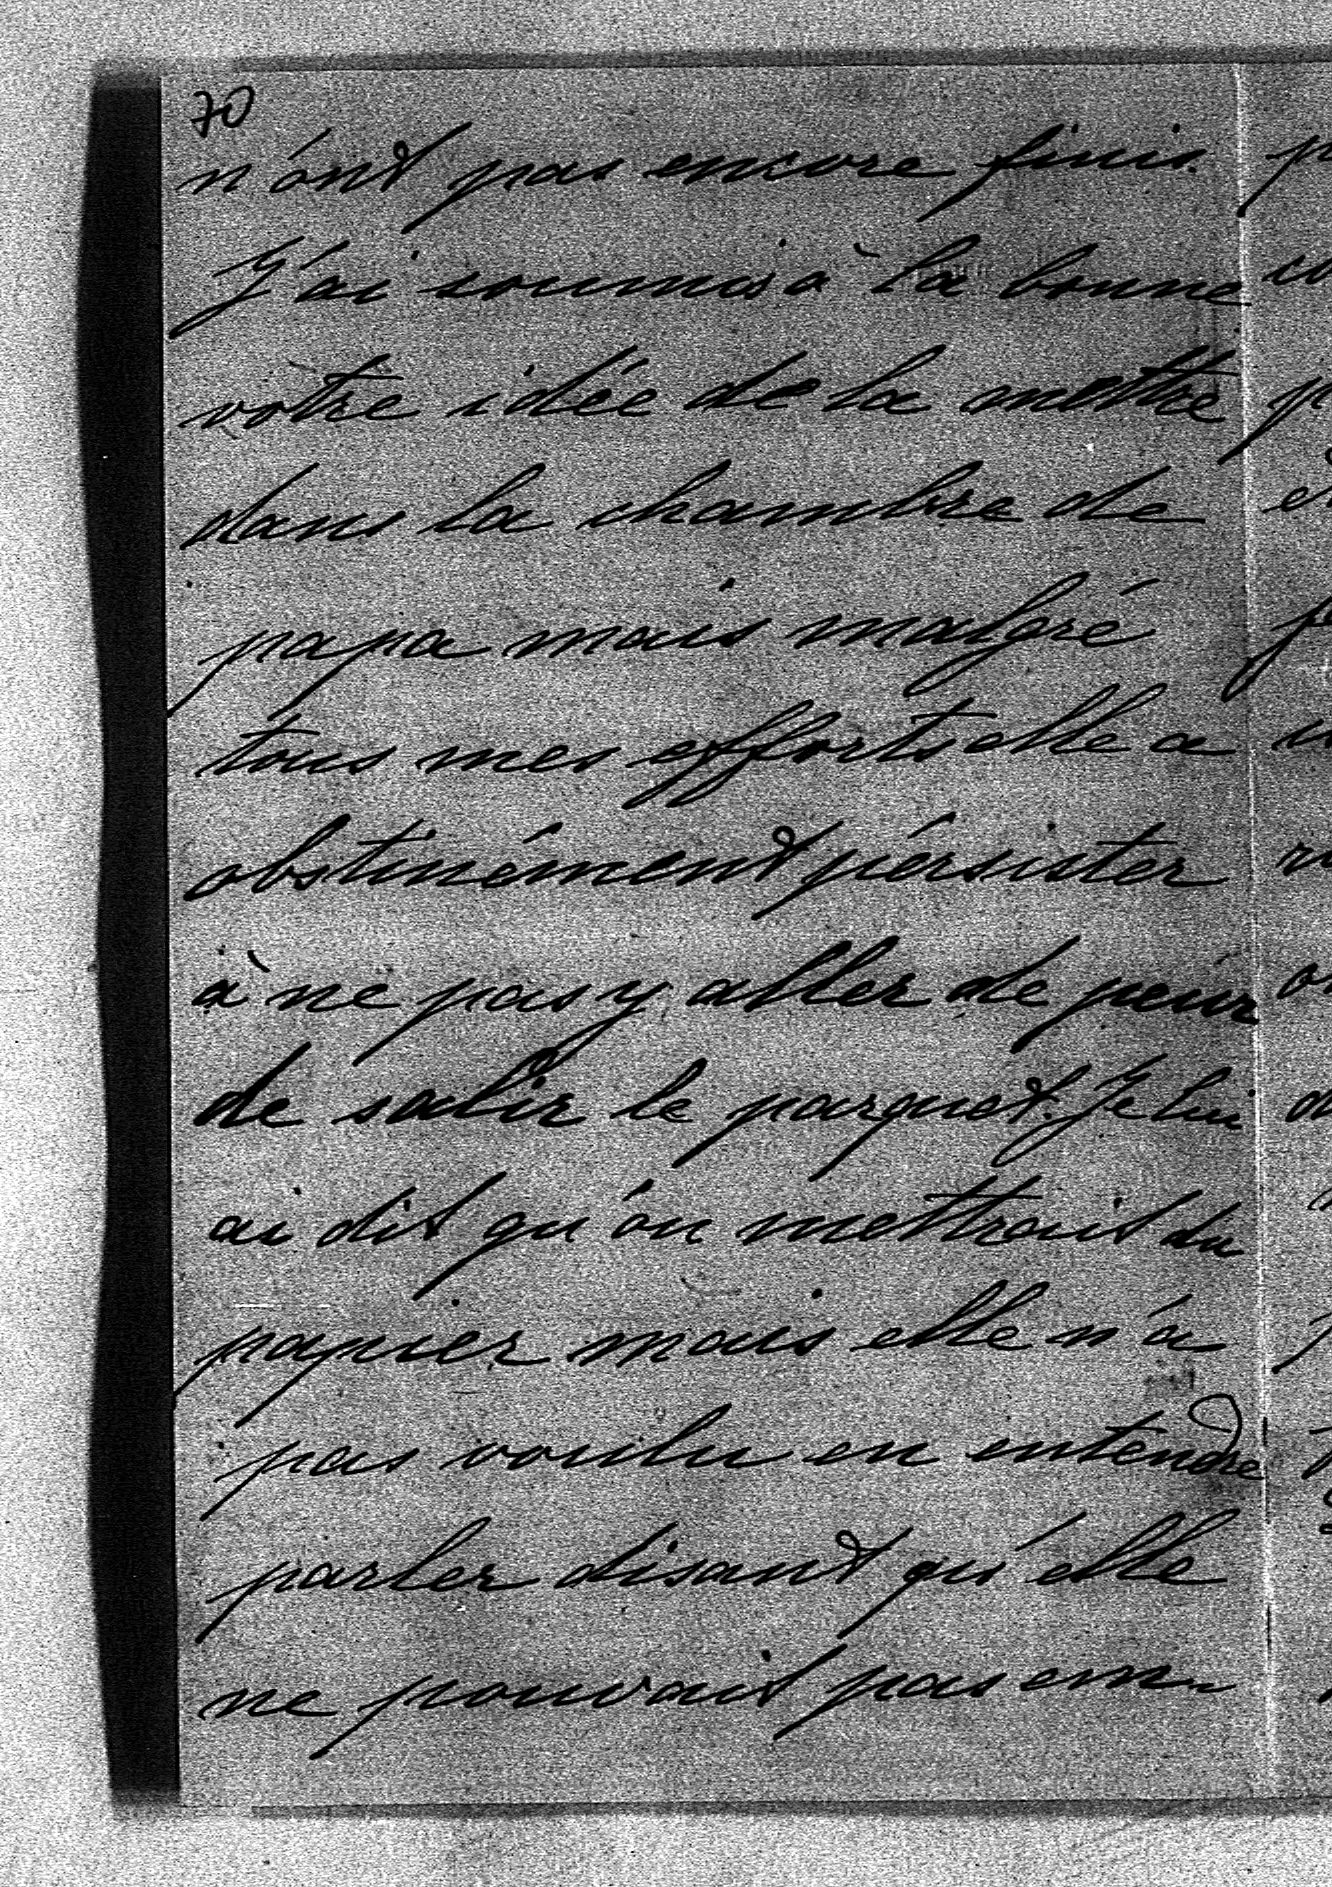 70
n'ont pas encore finis.
J'ai soumis à la bonne
votre idée de la mettre
dans la chambre de
papa mais malgré
tous mes efforts elle a
obstinément pérsister
à ne pas y aller de peur
de salir le parquet. Je lui
ai dit qu'on mettrait du
papier mais elle n'a
pas voulu en entendre
parler disant qu'elle
ne pouvait pas em